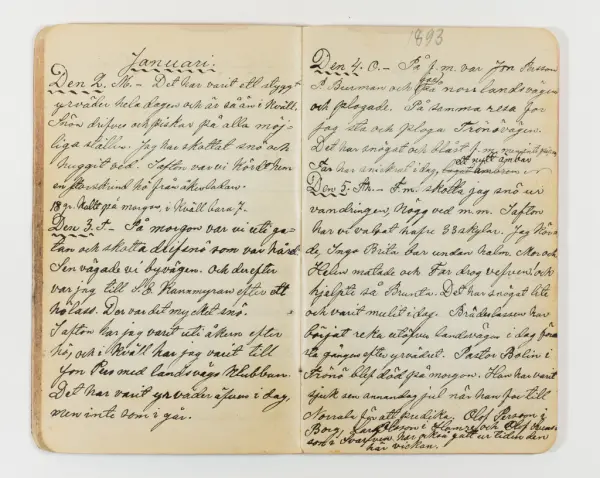 Januari.
Den 2. M. – Det har varit ett styggt
yrväder hela dagen och är så än i kväll.
Snön drifves och piskar på alla möj-
liga ställen. Jag har skottat snö och
huggit ved. I afton var vi
en hö från åkerladan.
18 gr. kallt på morgon, i kväll bara 7.
Den 3. T. – På morgon var vi uti ga-
tan och skotta drifsnö som var hård.
Sen vägade vi byvägen. Och derefter
var jag till efter ett
hölass. Der var det mycket snö.
I afton har jag varit uti åkern efter
hö, och i kväll har jag varit till
Jon Pers med landsvägs klubban.
Det har varit yrväder äfven i dag,
men inte som i går.
1893
Den 4. O. – På f.m. var Jon Persson
P. Beurman och på norrlandsvägen
och plogade. På samma resa for
jag sta och ploga Trönövägen.
Det har snögat och blåst f.m.
Far har snickrat i dag, ett nytt ämbar
Den 5. Th. – F.m. skotta jag snö ur
vandringen, högg ved m.m. I afton
har vi vabat hafre 33 skylar. Jag körd-
de, Inga Brita bar undan halm. Mor och
Helin matade och Far drog vefven och
hjelpte så Brunta. Det har snögat lite
och varit mulet i dag. Brädelassen har
börjat reka utöfver landsvägen i dag för
sta gången efter yrvädret. Pastor Bolin i
Trönö blef död på morgon. Han har varit
sjuk sen annandag jul när han for till
Norrala för att predika. Olof Persson i
Borg, Lars Olsson i och Olof
som i har också gått ur tiden den
här veckan.